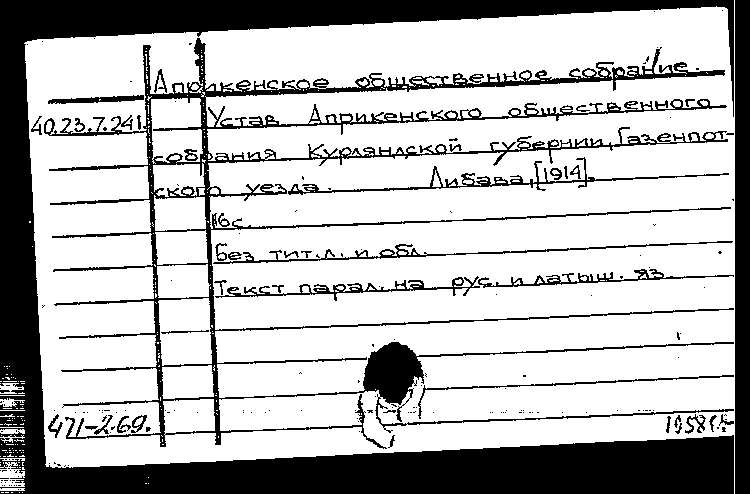 Априкенское общественное собрание.
40.23.7.241. Устав Априкенского общественного
собрания Курляндской губернии, Газенпот-
ского уезда. Либава, [1914].
16 с.
Без тит. л. и обл.
Текст парал. на рус. и латыш. яз.
471-2.69.